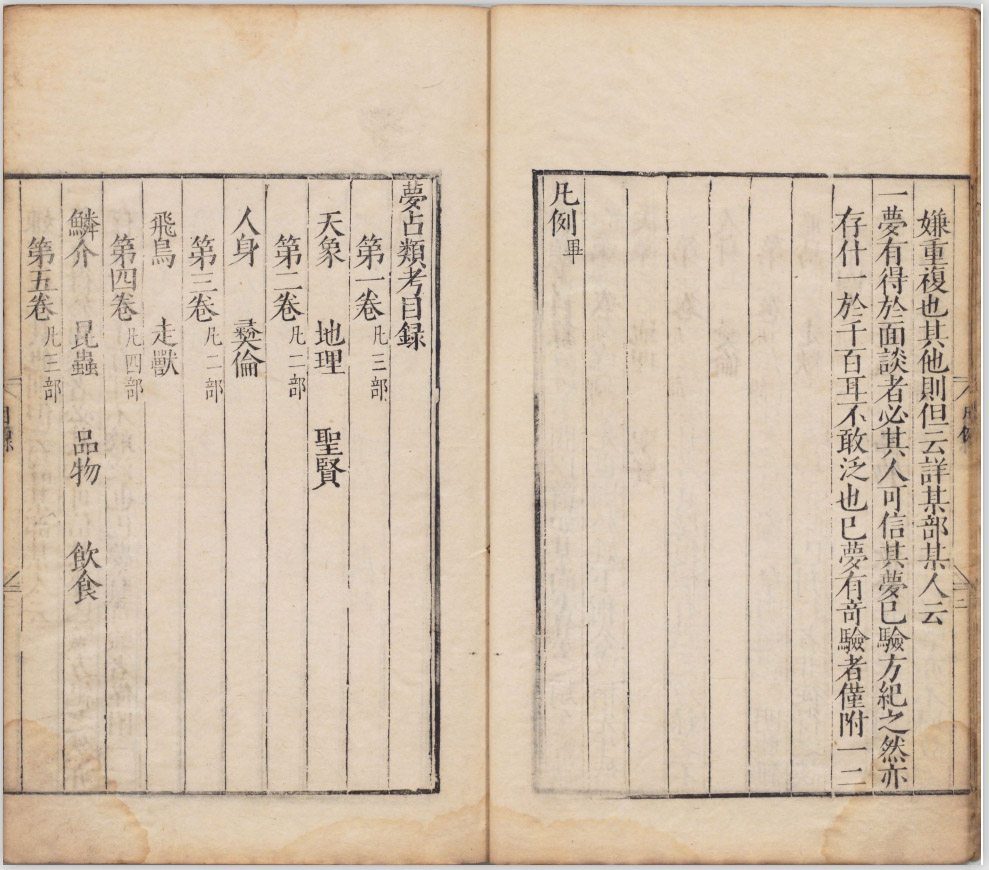 嫌重複也其他則但云詳某部某人云
一夢有得於面談者必其人可信其夢已驗方紀之然亦
存什一於千百耳不敢泛也已夢有竒驗者僅附一二
凡例畢
夢占類考目録
第一卷 凡三部
天象 地理 聖賢
第二卷 凡二部
人身 彝倫
第三卷 凡二部
飛鳥 走獸
第四卷 凡四部
鱗介 昆蟲 品物 飲食
第五卷 凡三部